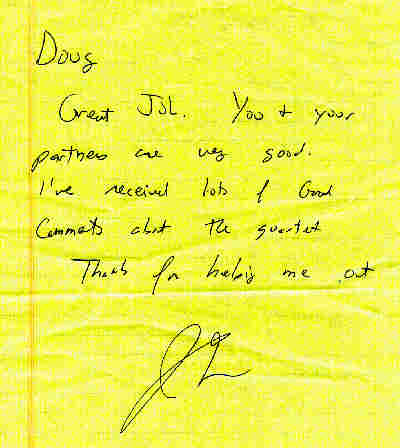 Doug
Great Job. You + your
partners are very good.
I've received lots of Good
Comments about the quartet
Thanks for helping me out